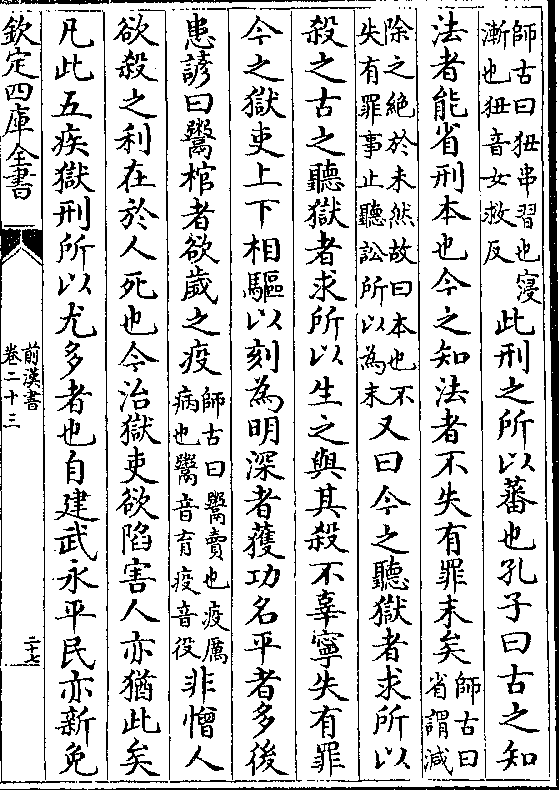 師古曰狃串習也寖
漸也狃音女救反
此刑之所以蕃也孔子曰古之知
法者能省刑本也今之知法者不失有罪末矣
師古曰
省謂減
除之絶於未然故曰本也不
失有罪事止聽訟所以為末
又曰今之聽獄者求所以
殺之古之聽獄者求所以生之與其殺不辜寧失有罪
今之獄吏上下相驅以刻為明深者獲功名平者多後
患諺曰鬻棺者欲歲之疫
師古曰鬻賣也疫厲
病也鬻音育疫音役
非憎人
欲殺之利在於人死也今治獄吏欲陷害人亦猶此矣
凡此五疾獄刑所以尤多者也自建武永平民亦新免
欽定四庫全書
前漢書
卷二十三
二十七